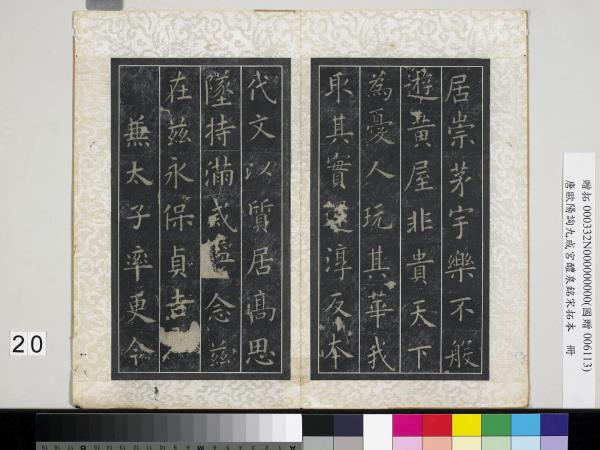 居崇茅宇樂不般
遊黃屋非貴天下
為憂人玩其華我
取其實還淳反本
代文以質居高思
墜持滿戒溢念茲
在茲永保貞吉
兼太子率更令
贈拓 000332N000000000(國贈 006113)
唐歐陽詢九成宮醴泉銘宋拓本 冊
20